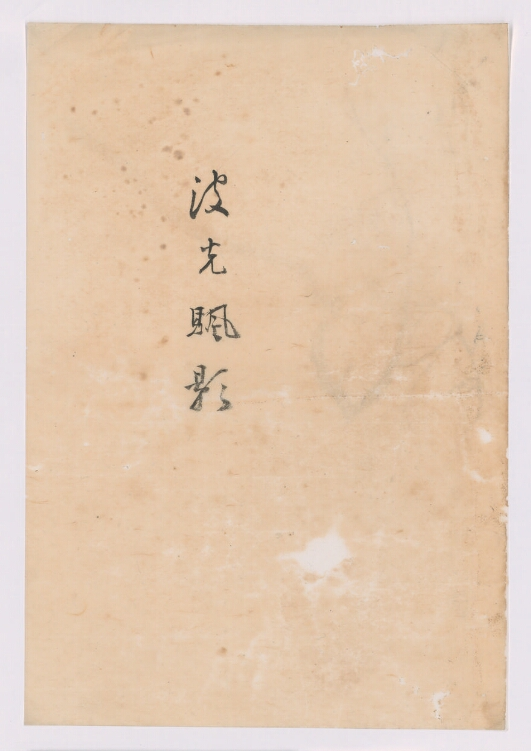 波光颿影